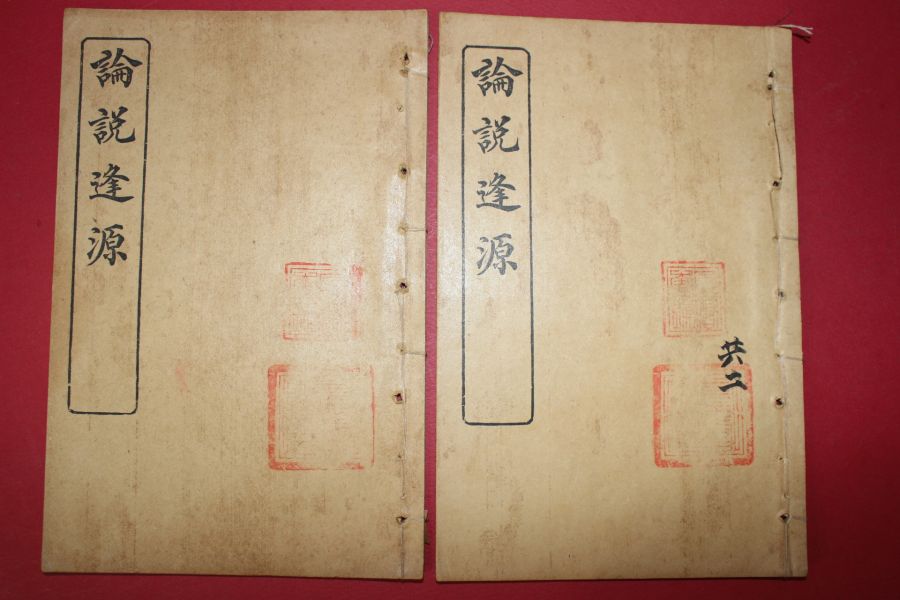 論説逢源
論説逢源
共二